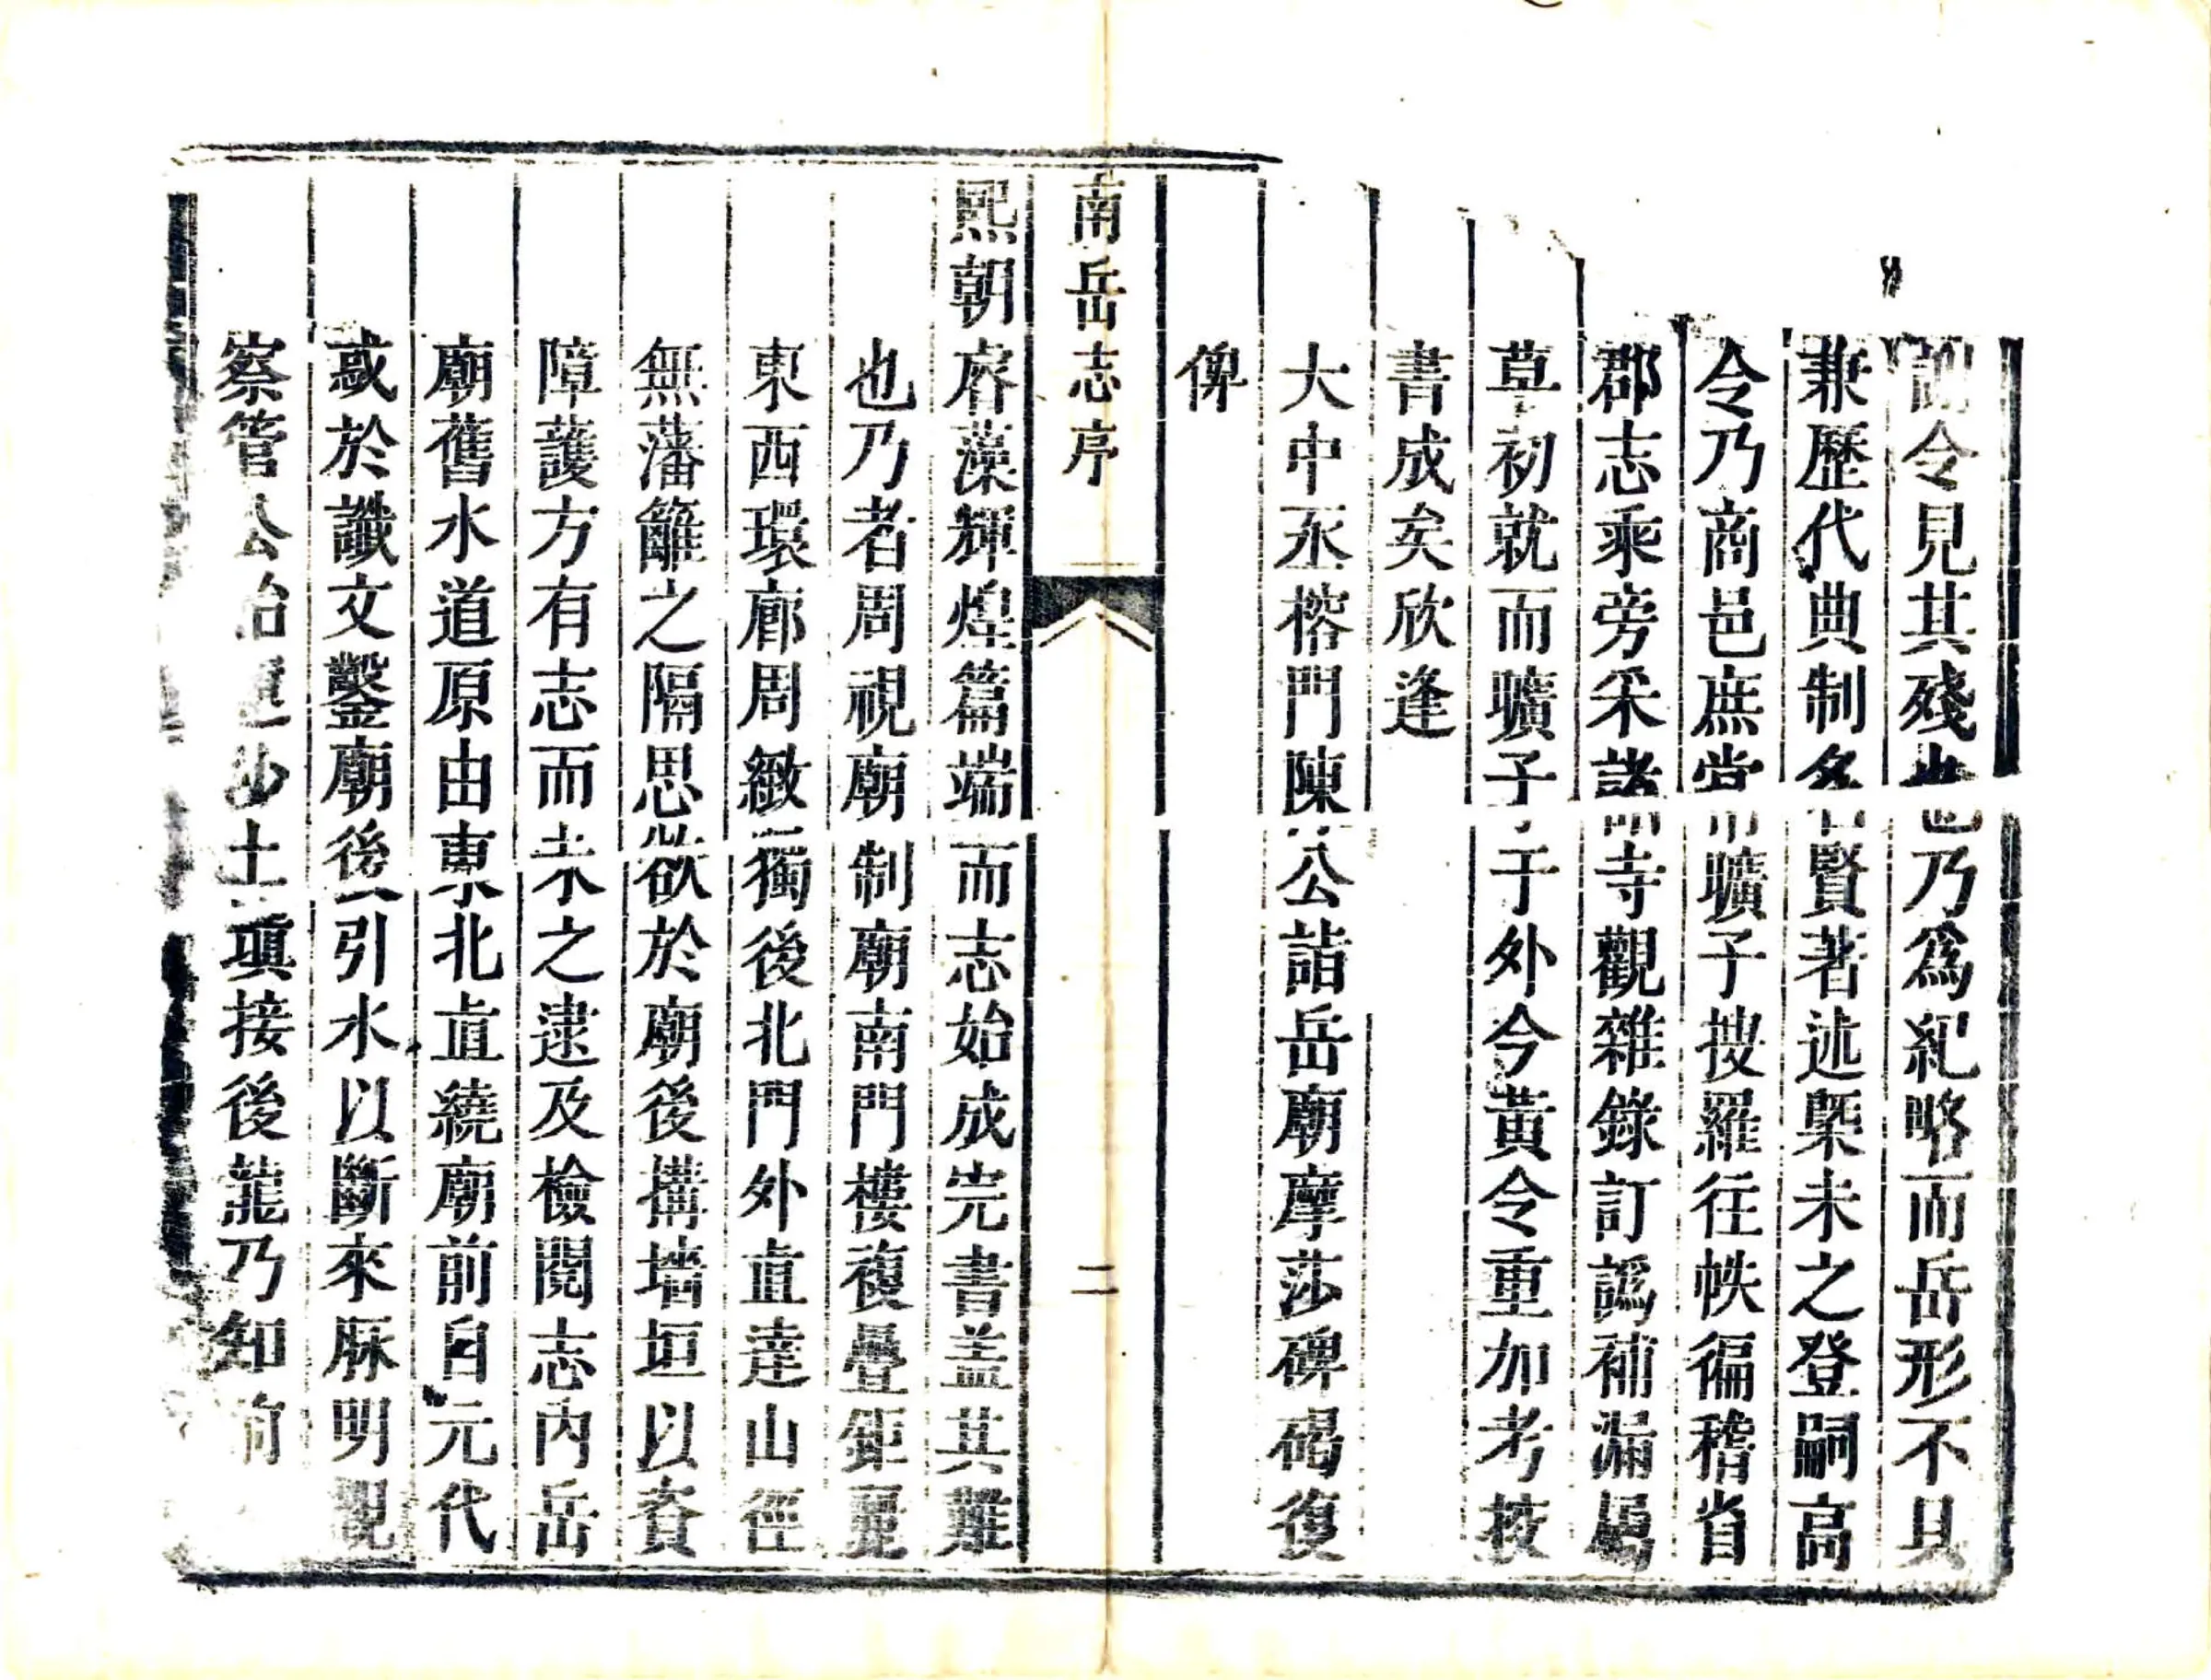 令見其殘也乃為紀略而岳形不具
兼歷代典制名賢著述槩未之登嗣高
令乃商邑庶常曠子搜羅往帙徧稽省
郡志乘旁采諸寺觀雜錄訂譌補漏屬
草初就而曠子于外今黃令重加考挍
書成矣欣逢
大中丞榕門陳公詣岳廟摩莎碑碣復
俾
南岳志序
二
熙朝睿藻輝煌篇端而志始成完書盖其難
也乃者周視廟制廟南門樓複疊鉅麗
東西環廊周緻獨後北門外直達山徑
無藩籬之隔思欲於廟後搆墻垣以資
障護方有志而未之逮及檢閱志內岳
廟舊水道原由東北直繞廟前自元代
或於讖文鑿廟後引水以斷來脉明觀
察管公始運沙土塡接後龍乃知前